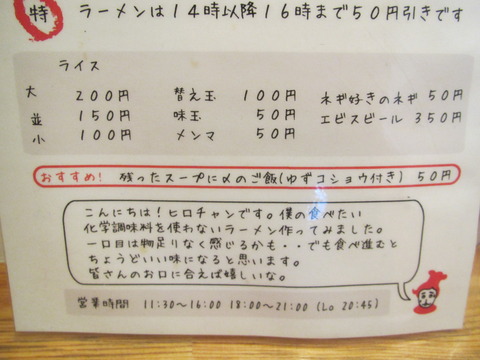 特 ラーメンは14時以降16時まで50円引きです
ライス
大 200円 替え玉 100円 ネギ好きのネギ 50円
並 150円 味玉 50円 エビスビール 350円
小 100円 メンマ 50円
おすすめ! 残ったスープに〆のご飯(ゆずコショウ付き) 50円
こんにちは!ヒロチャンです。僕の食べたい
化学調味料を使わないラーメン作ってみました。
一口目は物足りなく感じるかも・・でも食べ進むと
ちょうどいい味になると思います。
皆さんのお口に合えば嬉しいな。
営業時間 11:30〜16:00 18:00〜21:00 (Lo 20:45)